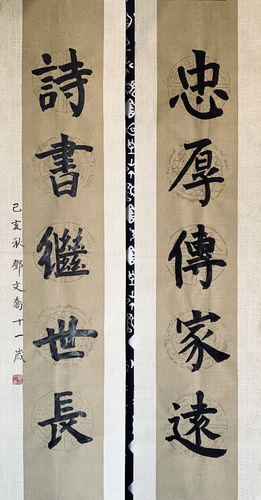 忠厚傳家遠
詩書繼世長
己亥秋鄧文喬十一歲